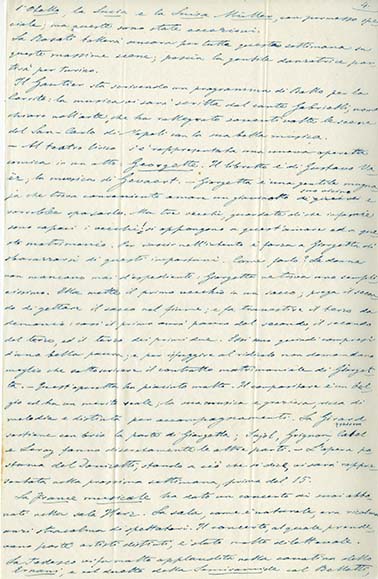 4.
l'Otello, la Lucia e la Luisa Miller, con promesso spe
ciale, ma queste sono state eccezioni.
La Rosati ballerà ancora per tutta questa settimana su
queste massime scene; poscia la gentile danzatrice par
tirà per Torino.
Il Gautier sta scrivendo un programma di Ballo per la
Rosati: la musica ne sarà scritta dal conte Gabrielli, nome
chiaro nell'arte, che ha rallegrato sovente le scene
del San Carlo di Napoli con la sua bella musica.
— Al teatro lirico s'è rappresentata una nuova operetta
comica in un atto Georgette. Il libretto è di Gustavo Va
ëz, la musica di Gevaert. — Georgetta è una gentile mugna
ja che trova conveniente amare un giovanotto di
vorrebbe sposarlo. Ma tre vecchi,
sono capaci i vecchi! si oppongono a quest'amore ed a que
sto matrimonio. Lo scopo nell'intento è forza a Georgetta di
sbarazzarsi di questi importuni. Come farlo? Le donne
non mancano mai d'espedienti; Georgetta ne trova uno sempli
cissimo. Ella mette il primo vecchio in un sacco, prega il secon
do di gettare il sacco nel fiume; e fa trascinare il terzo da
demonio: così il primo avrà paura del secondo, il secondo
del terzo, ed il terzo dei primi due. Essi son quindi compresi
d'una bella paura, e per isfuggire al ridicolo non devono fare
meglio che sottoscrivere il contratto matrimoniale di Giorget
ta. — Quest'operetta ha piaciuto molto. Il compositore è un bel
gio ed ha un merito reale; la sua musica è graziosa, ricca di
melodie e distinta per accompagnamento. La Girard
sostiene con brio la parte di Giorgetta; Sujol, Grignon, Cabel
e Leroy fanno discretamente le altre parti. — L'opera po
stuma del Donizetti, stando a ciò che si dice, si sarà rappre
sentata nella prossima settimana, prima del 15.
La France musicale ha dato un concerto di suoi abbo
nati nella sala Herz. La sala, come è naturale, era ricolma
anzi straccolma di spettatori. Il concerto, al quale prende
vano parte artisti distinti, è stato molto dilettevole.
La Tedesco vi fu molto applaudita nella cavatina dello
Ernani; e nel duetto della Semiramide col Belletti,